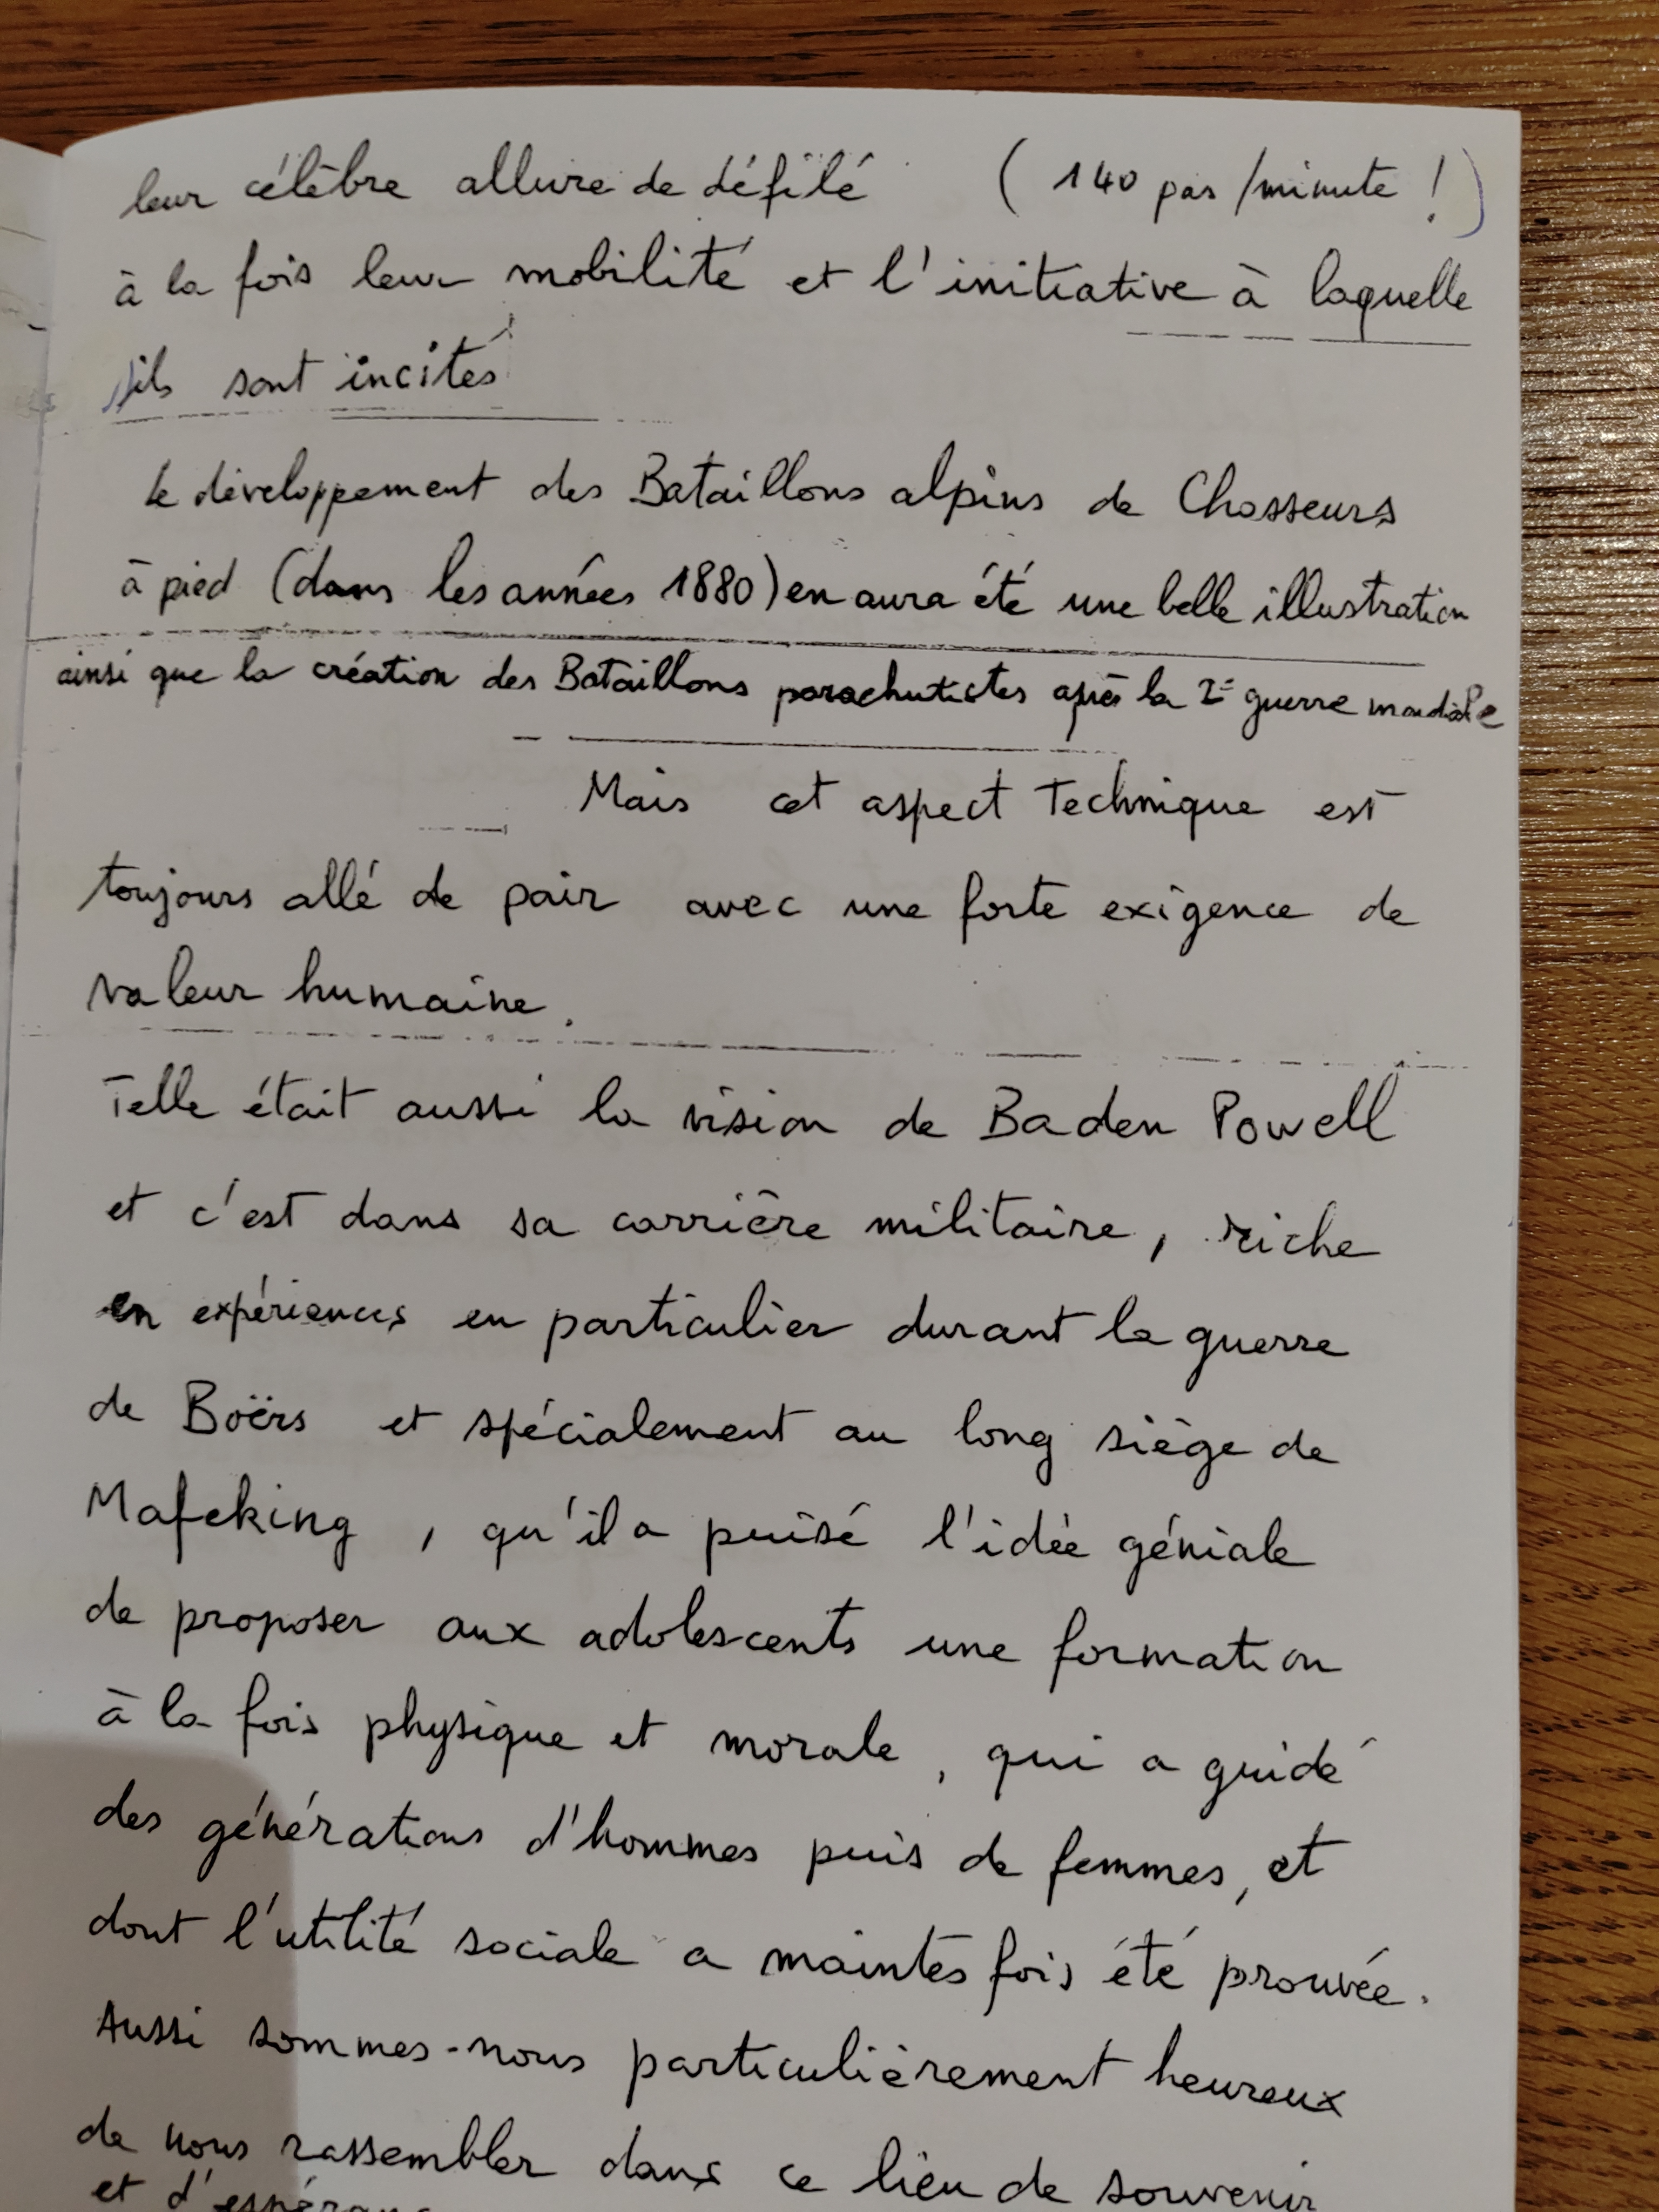 leur célèbre allure de défilé (140 pas/minute !)
à la fois leur mobilité et l'initiative à laquelle
ils sont incités
Le développement des Bataillons alpins de Chasseurs
à pied (dans les années 1880) en aura été une belle illustration
ainsi que la création des Bataillons parachutistes après la 2e guerre mondiale
Mais cet aspect technique est
toujours allé de pair avec une forte exigence de
valeur humaine.
Telle était aussi la vision de Baden Powell
et c'est dans sa carrière militaire, riche
en expériences en particulier durant la guerre
de Boërs et spécialement au long siège de
Mafeking, qu'il a puisé l'idée géniale
de proposer aux adolescents une formation
à la fois physique et morale, qui a guidé
des générations d'hommes puis de femmes, et
dont l'utilité sociale a maintes fois été prouvée.
Aussi sommes-nous particulièrement heureux
de nous rassembler dans ce lieu de souvenir
et d'